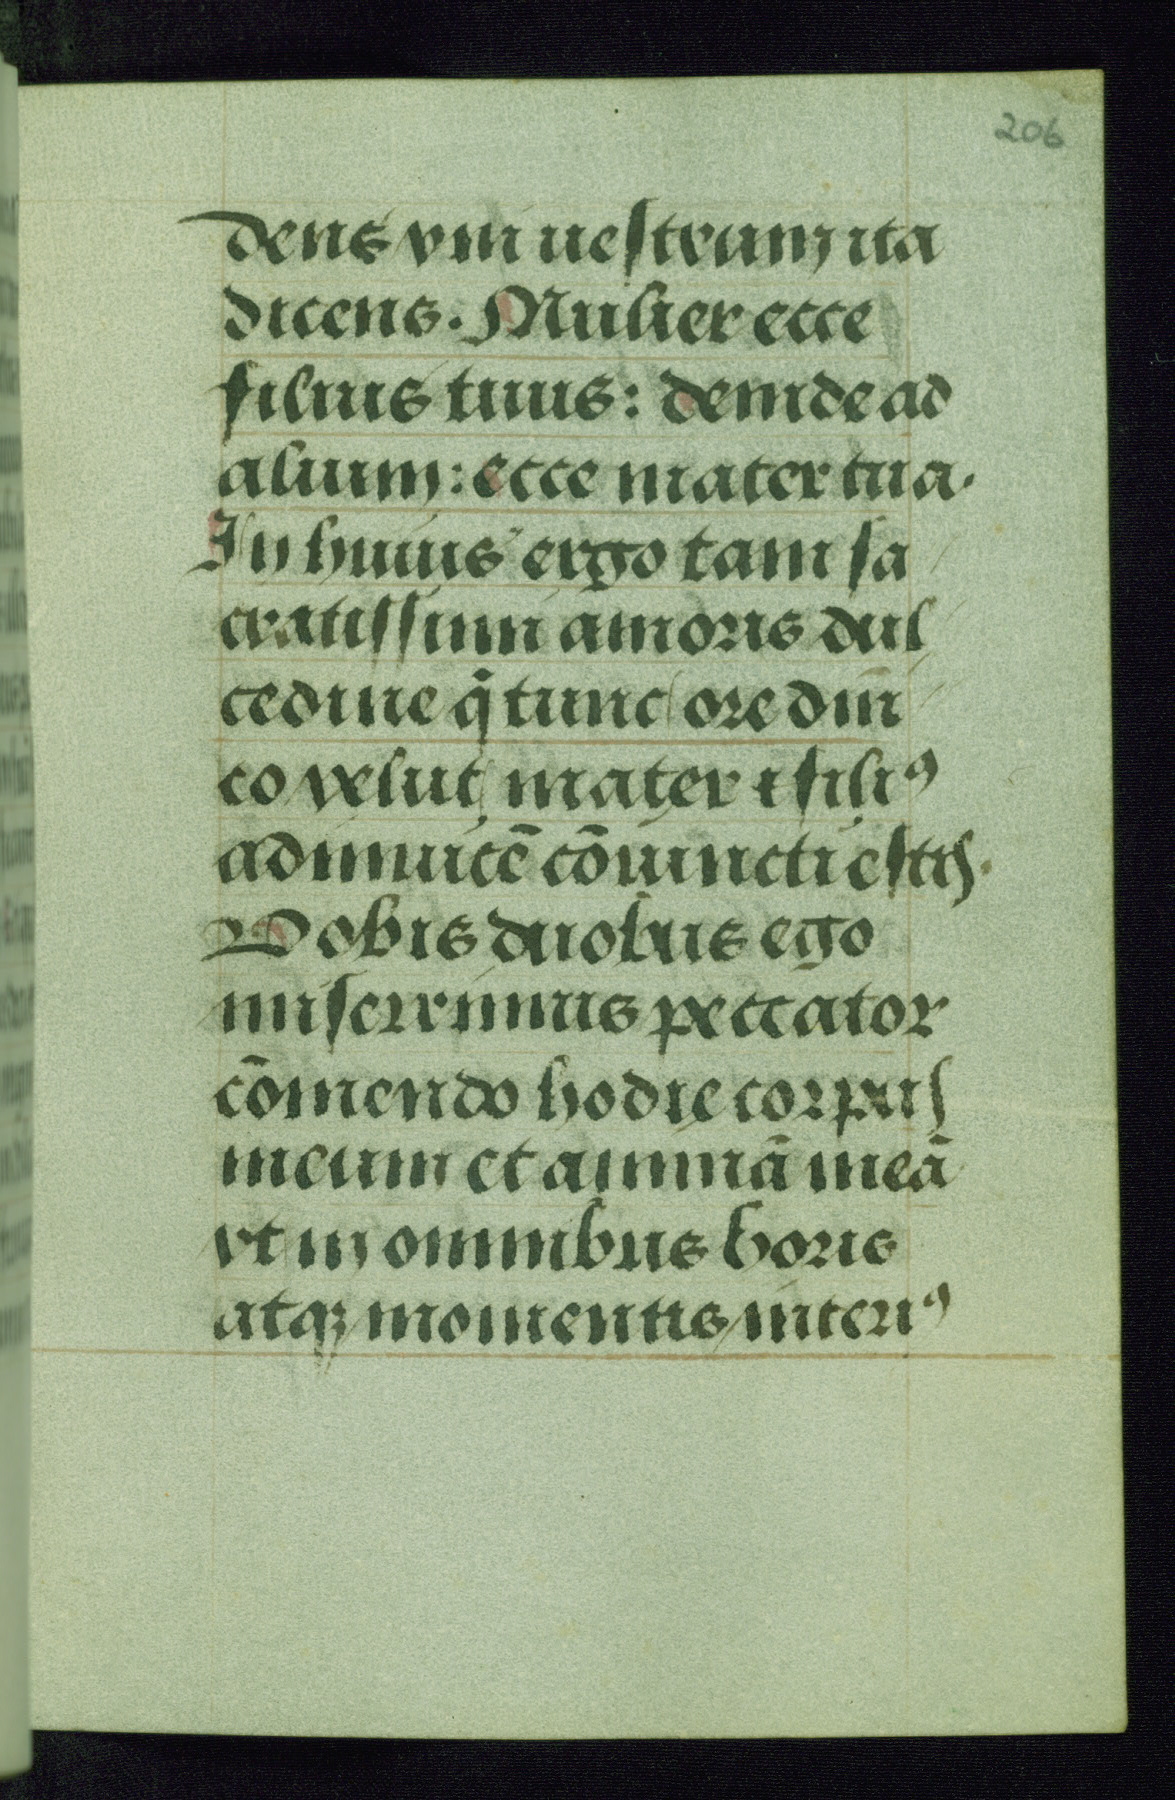 206
dens vni uestrum ita
dicens. Mulier ecce
filius tuus: deinde ad
alium: ecce mater tua.
In huius ergo tam sa
cratissimi amoris dul
cedine q̇ tunc ore dn̄i
co velut mater ⁊ filiꝰ
adinuicē cōiuncti estis.
Vobis duobus ego
miserrimus peccator
cōmendo hodie corpus
meum et animā meā
vt in omnibus horis
atqꝫ momentis interiꝰ